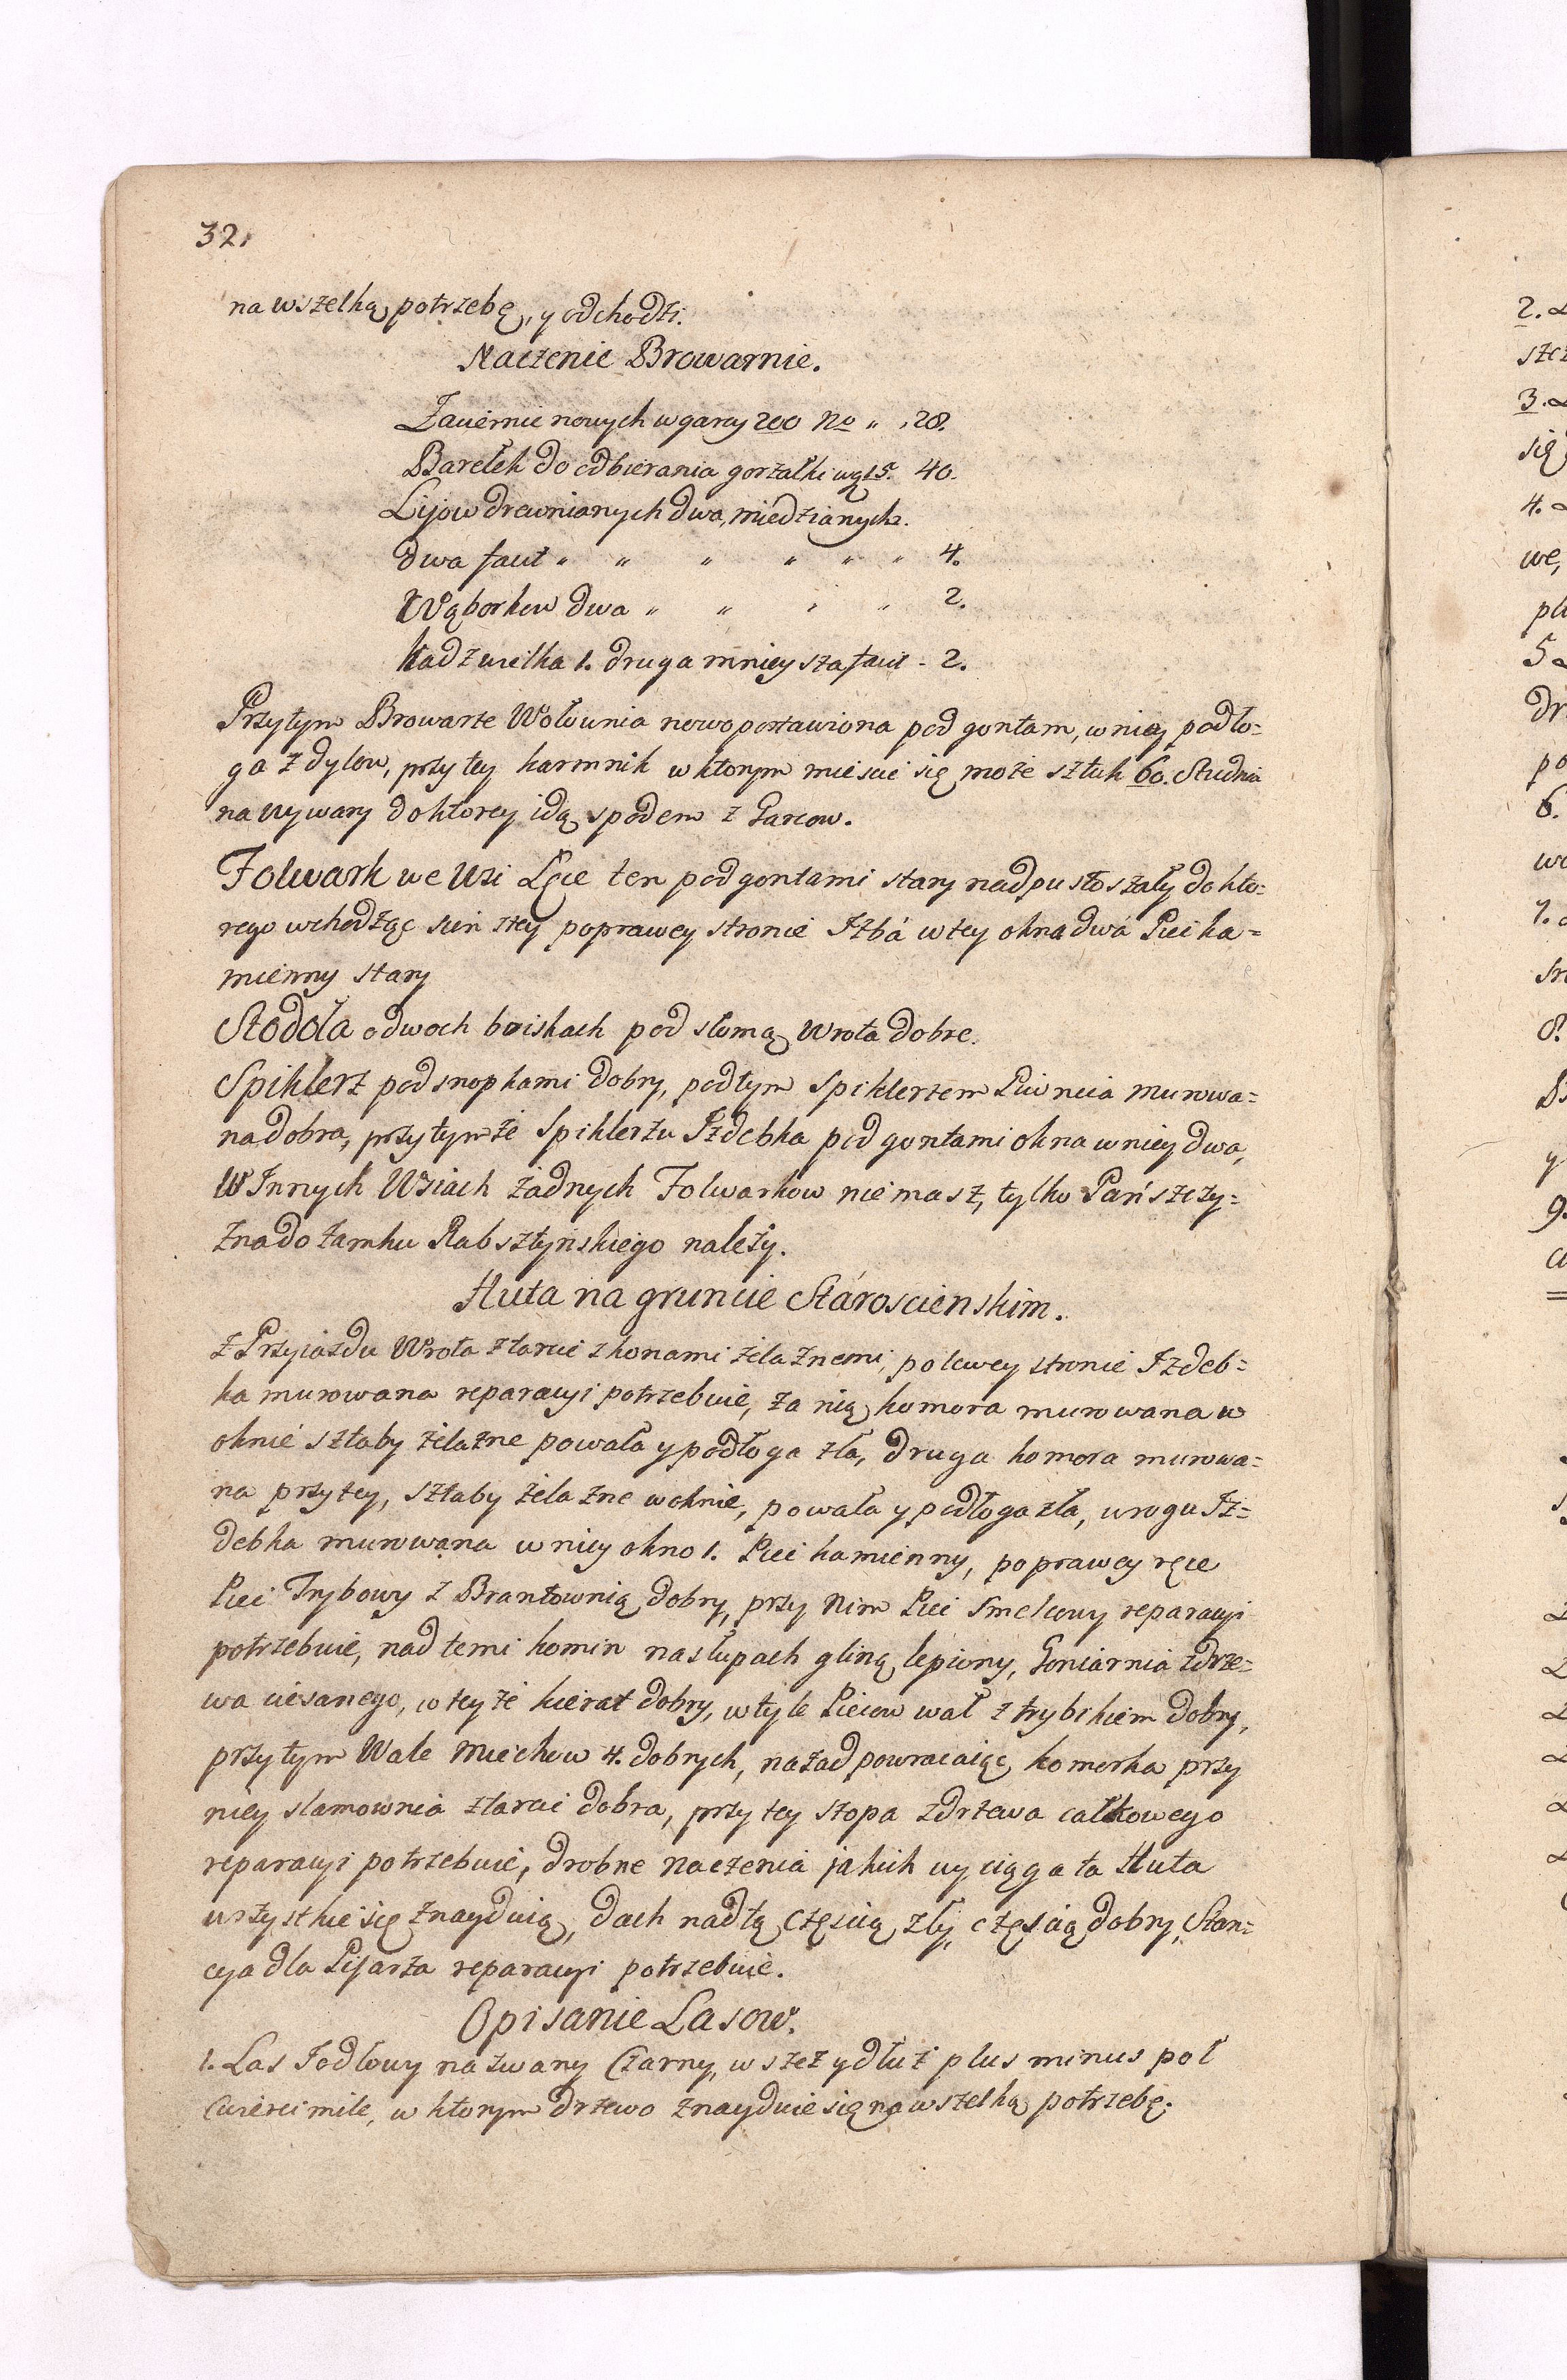 32.
na wszelką potrzebę, y odchodzi.
Naczenie Browarnie.
Zaciernic nowych w garcy 200 No „ „ 28.
Barełek do odbierania gorzałki w g 15. 40.
Lijow drewnianych dwa, miedzianych
dwa facit „ „ „ „ „ „ 4.
Wąborkow dwa „ „ „ „ 2.
Kadz wielka 1. druga mnieysza facit - 2.
Przytym Browarze Wołownia nowo postawiona pod gontam, w niey podło=
ga z dylow, przy tey karmnik w ktorym miescic się może sztuk 60. Studnia
na wywary do ktorey idą spodem z Garcow.
Folwark we Wsi Łęce ten pod gontami stary nadpustoszały do kto=
rego wchodząc sień z tey po prawey stronie Izba w tey okna dwa Piec ka=
mienny stary
Stodoła o dwoch boiskach pod słomą Wrota dobre.
Spiklerz pod snopkami dobry, pod tym Spiklerzem Piwnica murowa=
na dobra, przy tymże Spiklerzu Izdebka pod gontami okna w niey dwa,
W Innych Wsiach żadnych Folwarkow nie masz, tylko Pańszczy=
zna do Zamku Rabsztyńskiego należy.
Huta na gruncie Staroscienskim.
Z Przyiazdu Wrota z tarcic z konami żelaznemi, po lewey stronie Izdeb=
ka murowana reparacyi potrzebuie, za nią komora murowana w
oknie sztaby żelazne powała y podłoga zła, druga komora murowa=
na przy tey, sztaby żelazne w oknie, powała y podłoga zła, w rogu Iz=
debka murowana w niey okno 1. Piec kamienny, po prawey ręce
Piec Trybowy z Brantownią dobry, przy Nim Piec Smelcowy reparacyi
potrzebuie, nad temi komin na słupach gliną lepiony, Goniarnia z drze=
wa ciesanego, w teyże kierat dobry, w tyle Piecow wał z trybikiem dobry,
przy tym Wale Miechow 4. dobrych, nazad powracaiąc komorka przy
niey slamownia z tarcic dobra, przy tey stopa z drzewa całkowego
reparacyi potrzebuie, drobne naczenia jakich wyciąga ta Huta
wszystkie się znayduią, dach nad tą częscią zły, częscią dobry, Stan=
cya dla Pisarza reparacyi potrzebuie.
Opisanie Lasow.
1. Las Jodłowy nazwany Czarny, w szez y dłuż plus minus poł
Cwierci mile, w ktorym drzewo znayduie się na wszelką potrzebę.